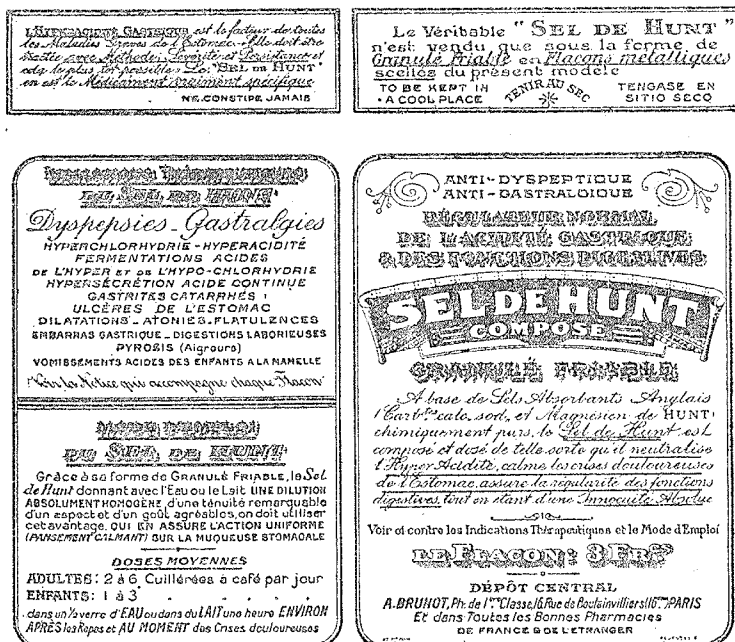 L'HYPERACIDITÉ GASTRIQUE est le facteur de toutes
les Maladies Graves de l'Estomac. Elle doit être
traitée avec Méthode, Sévérité et Persistance et
cela le plus tôt possible. Le "SEL DE HUNT"
en est le Médicament vraiment spécifique
NE CONSTIPE JAMAIS
Le Véritable "SEL DE HUNT"
n'est vendu que sous la forme de
Granulé Friable en Flacons métalliques
scellés du présent modèle
TO BE KEPT IN A COOL PLACE
TENIR AU SEC
TENGASE EN SITIO SECO
DU SEL DE HUNT
Dyspepsies - Gastralgies
HYPERCHLORHYDRIE - HYPERACIDITÉ
FERMENTATIONS ACIDES
DE L'HYPER ET DE L'HYPO-CHLORHYDRIE
HYPERSÉCRÉTION ACIDE CONTINUE
GASTRITES CATARRHES
ULCÈRES DE L'ESTOMAC
DILATATIONS - ATONIES - FLATULENCES
EMBARRAS GASTRIQUE - DIGESTIONS LABORIEUSES
PYROSIS (Aigreurs)
VOMISSEMENTS ACIDES DES ENFANTS A LA MAMELLE
Voir la Notice qui accompagne chaque Flacon
MODE D'EMPLOI
DU SEL DE HUNT
Grâce à sa forme de GRANULÉ FRIABLE, le Sel
de Hunt donnant avec l'Eau ou le Lait UNE DILUTION
ABSOLUMENT HOMOGÈNE, d'une ténuité remarquable
d'un aspect et d'un goût agréables, on doit utiliser
cet avantage, QUI EN ASSURE L'ACTION UNIFORME
(PANSEMENT CALMANT) SUR LA MUQUEUSE STOMACALE
DOSES MOYENNES
ADULTES: 2 à 6 Cuillérées à café par jour
ENFANTS: 1 à 3 " " " "
dans un ½ verre d'EAU ou dans du LAIT une heure ENVIRON
APRÈS les Repas et AU MOMENT des Crises douloureuses
ANTI-DYSPEPTIQUE
ANTI-GASTRALGIQUE
RÉGULATEUR NORMAL
DE L'ACIDITÉ GASTRIQUE
& DES FONCTIONS DIGESTIVES
SEL DE HUNT
COMPOSÉ
GRANULÉ FRIABLE
A base de Sels Absorbants Anglais
(Carb.tes calc. sod. et Magnésien de HUNT)
chimiquement purs, le Sel de Hunt est
composé et dosé de telle sorte qu'il neutralise
l'Hyper Acidité, calme les crises douloureuses
de l'Estomac, assure la régularité des fonctions
digestives, tout en étant d'une Innocuité Absolue
Voir ci contre les Indications Thérapeutiques et le Mode d'Emploi
LE FLACON: 3 Frcs
DÉPÔT CENTRAL
A. BRUNOT, Ph. de 1re Classe, 16, Rue de Boulainvilliers (16me) PARIS
Et dans Toutes les Bonnes Pharmacies
DE FRANCE & DE L'ETRANGER